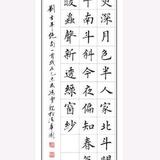 更深月色半人家北斗闌
干南斗斜今夜偏知春氣
暖蟲聲新透綠窗紗
劉方平絕句一首